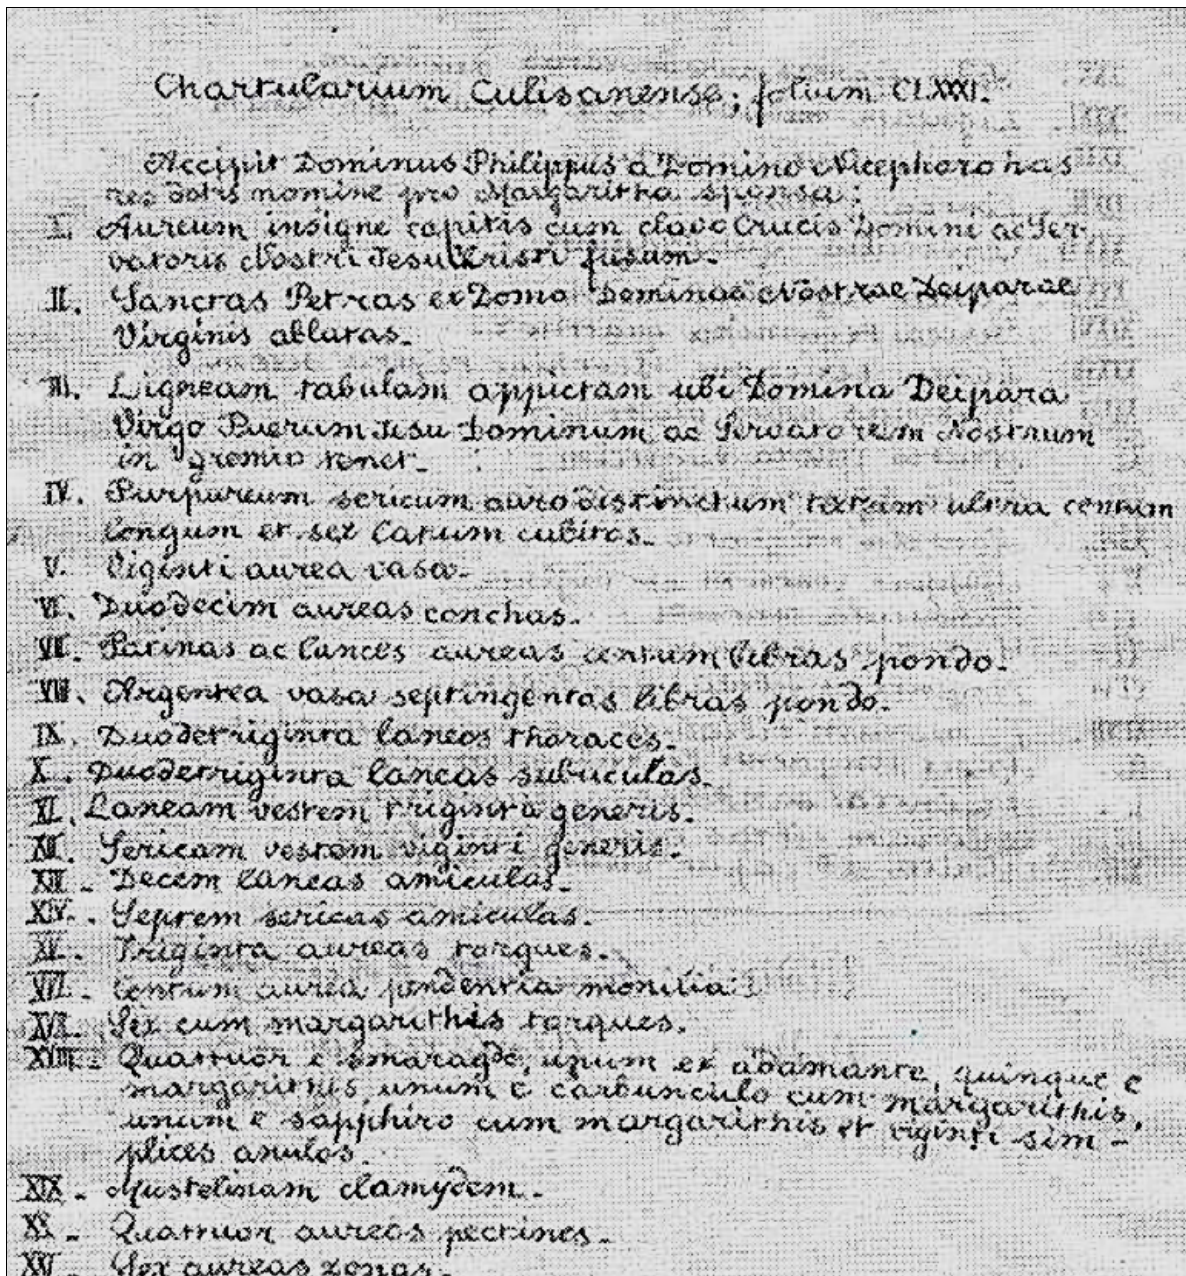 Chartularium Culisanense; folium CLXXXI.
Accipit Dominus Philippus a Domino Nicephoro has
res dotis nomine pro Margaritha sponsa:
I. Aureum insigne capitis cum clavo Crucis Domini ac Ser-
vatoris Nostri Jesu Kristi fusum.
II. Sanctas Petras ex Domo Dominae Nostrae Deiparae
Virginis ablatas.
III. Ligneam tabulam appictam ubi Domina Deipara
Virgo Puerum Jesu Dominum ac Servatorem Nostrum
in gremio tenet.
IV. Purpureum sericum auro distinctum textum ultra centum
longum et sex latum cubitos.
V. Viginti aurea vasa.
VI. Duodecim aureas conchas.
VII. Patinas ac lances aureas centum libras pondo.
VIII. Argentea vasa septingentas libras pondo.
IX. Duodetriginta laneos thoraces.
X. Duodetriginta laneas subuculas.
XI. Laneam vestem triginta generis.
XII. Sericam vestem viginti generis.
XIII - Decem laneas amiculas.
XIV. Septem sericas amiculas.
XV. Triginta aureas torques.
XVI. Centum aurea pendentia monilia
XVII. Sex cum margarithis torques.
XVIII. Quattuor e smaragdo, unum ex adamante, quinque e
margarithis, unum e carbunculo cum margarithis,
unum e sapphiro cum margarithis et viginti sim-
plices anulos.
XIX - Mustelinam clamydem.
XX - Quattuor aureos pectines.
XXI Sex aureas zonas.